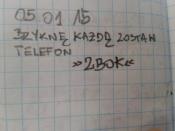 05.01 15
BZYKNĘ KAŻDĘ ZOSTAW
TELEFON
»ZBOK«